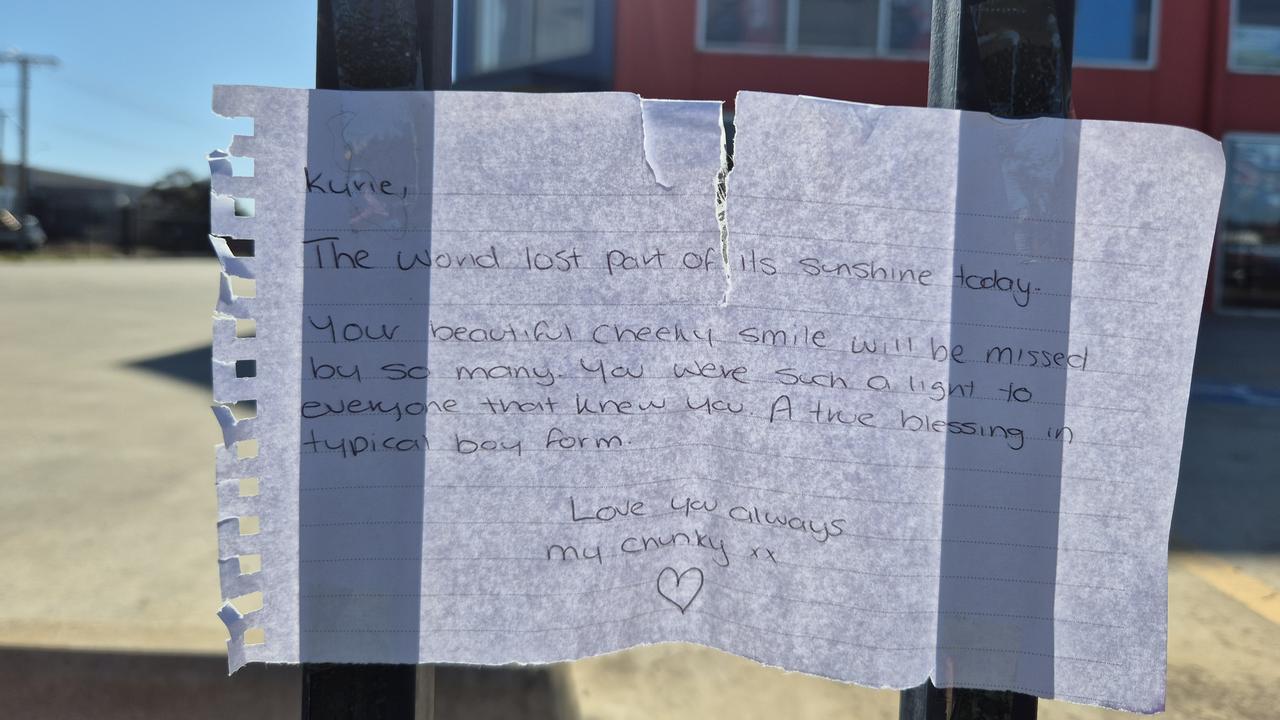 Kyrie,
The world lost part of its sunshine today.
Your beautiful cheeky smile will be missed
by so many. You were such a light to
everyone that knew you. A true blessing in
typical boy form.
Love you always
my chunky xx